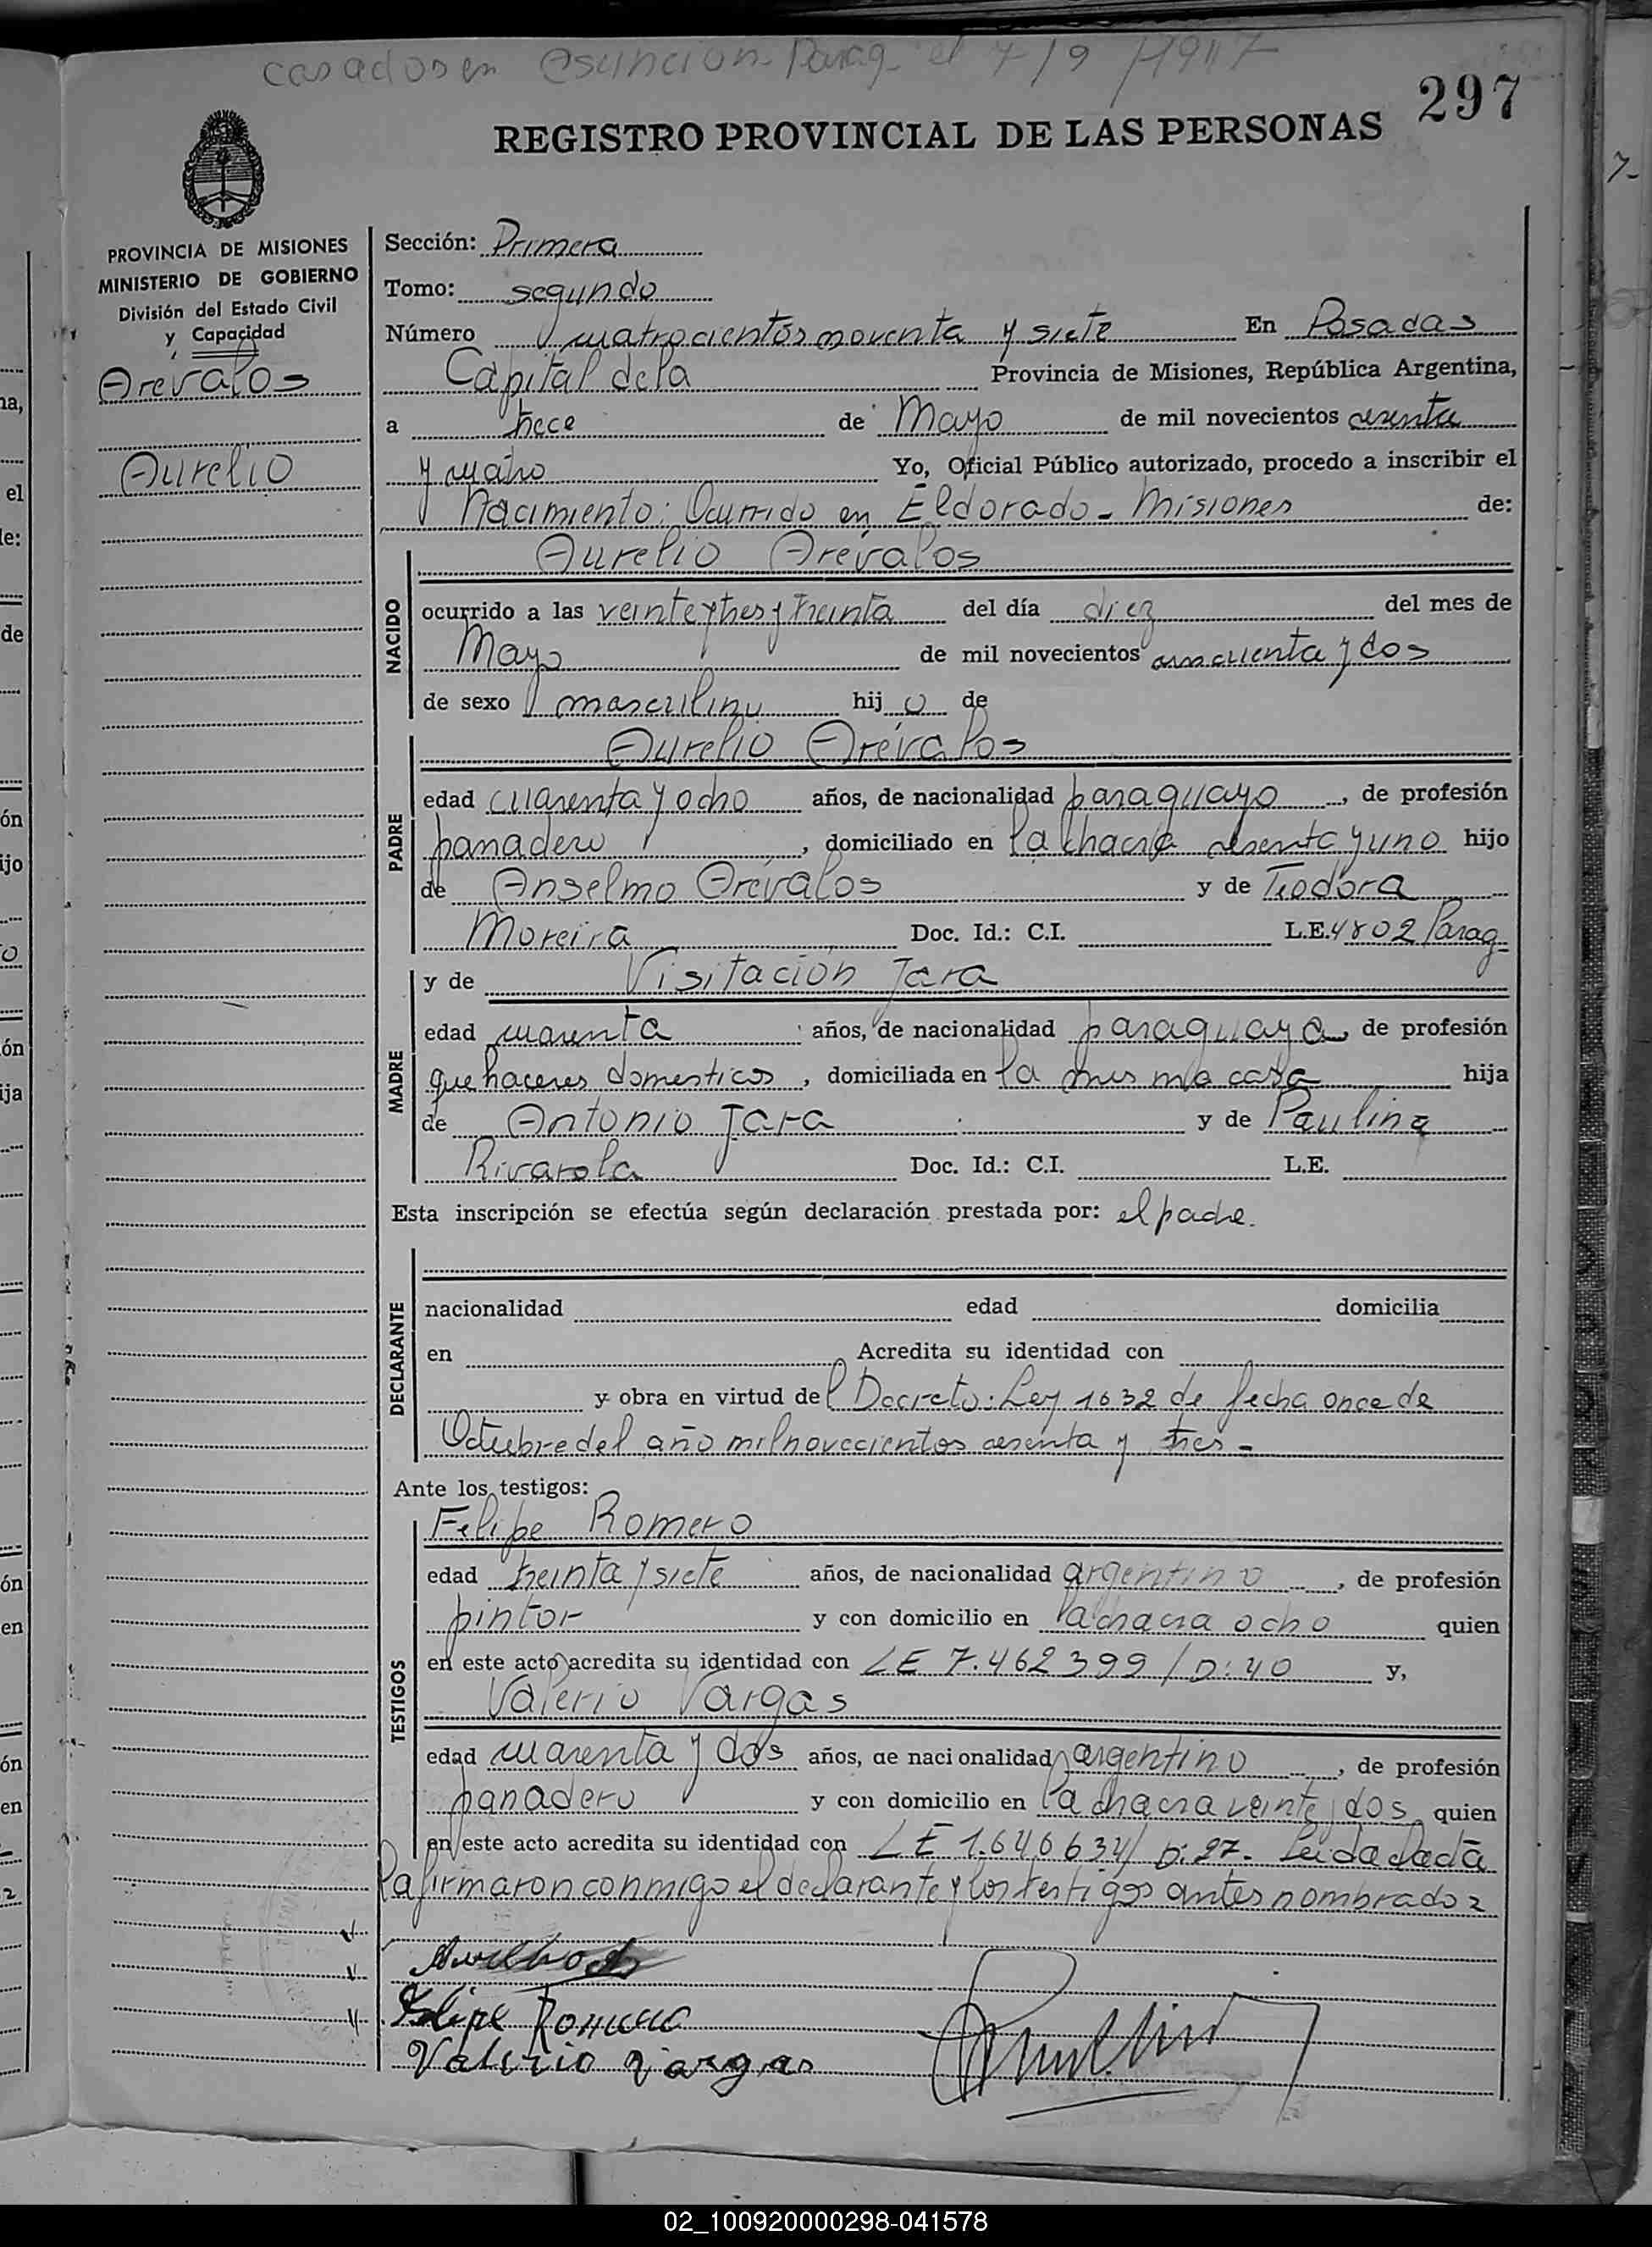 casados en Asunción - Parag - el 7/9/1947
297
REGISTRO PROVINCIAL DE LAS PERSONAS
PROVINCIA DE MISIONES
MINISTERIO DE GOBIERNO
División del Estado Civil
y Capacidad
Arevalos
Aurelio
Sección: Primera
Tomo: segundo
Número cuatrocientos noventa y siete En Posadas
Capital de la Provincia de Misiones, República Argentina,
a trece de Mayo de mil novecientos sesenta
y cuatro Yo, Oficial Público autorizado, procedo a inscribir el
Nacimiento: Ocurrido en Eldorado - Misiones de:
Aurelio Arévalos
NACIDO
ocurrido a las veinte y tres y treinta del día diez del mes de
Mayo de mil novecientos cincuenta y dos
de sexo masculino hijo de
Aurelio Arévalos
PADRE
edad cuarenta y ocho años, de nacionalidad paraguayo, de profesión
panadero, domiciliado en la chacra sesenta y uno hijo
de Anselmo Arévalos y de Teodora
Moreira Doc. Id.: C.I. L.E. 4802 Parag-
y de Visitación Jara
MADRE
edad cuarenta años, de nacionalidad paraguaya, de profesión
que haceres domesticos, domiciliada en la misma casa hija
de Antonio Jara y de Paulina
Rivarola Doc. Id.: C.I. L.E.
Esta inscripción se efectúa según declaración prestada por: el padre.
DECLARANTE
nacionalidad edad domicilia
en Acredita su identidad con
y obra en virtud del Decreto: Ley 1632 de fecha once de
Octubre del año mil novecientos sesenta y tres -
Ante los testigos:
Felipe Romero
TESTIGOS
edad treinta y siete años, de nacionalidad argentino, de profesión
pintor y con domicilio en la chacra ocho quien
en este acto acredita su identidad con LE 7.462399/D:40 y,
Valerio Vargas
edad cuarenta y dos años, de nacionalidad argentino, de profesión
panadero y con domicilio en la chacra veinte y dos quien
en este acto acredita su identidad con LE 1.646634/D:27- Leida el acta
la firmaron conmigo el declarante y los testigos antes nombrados
Felipe Romero
Valerio Vargas
02_100920000298-041578